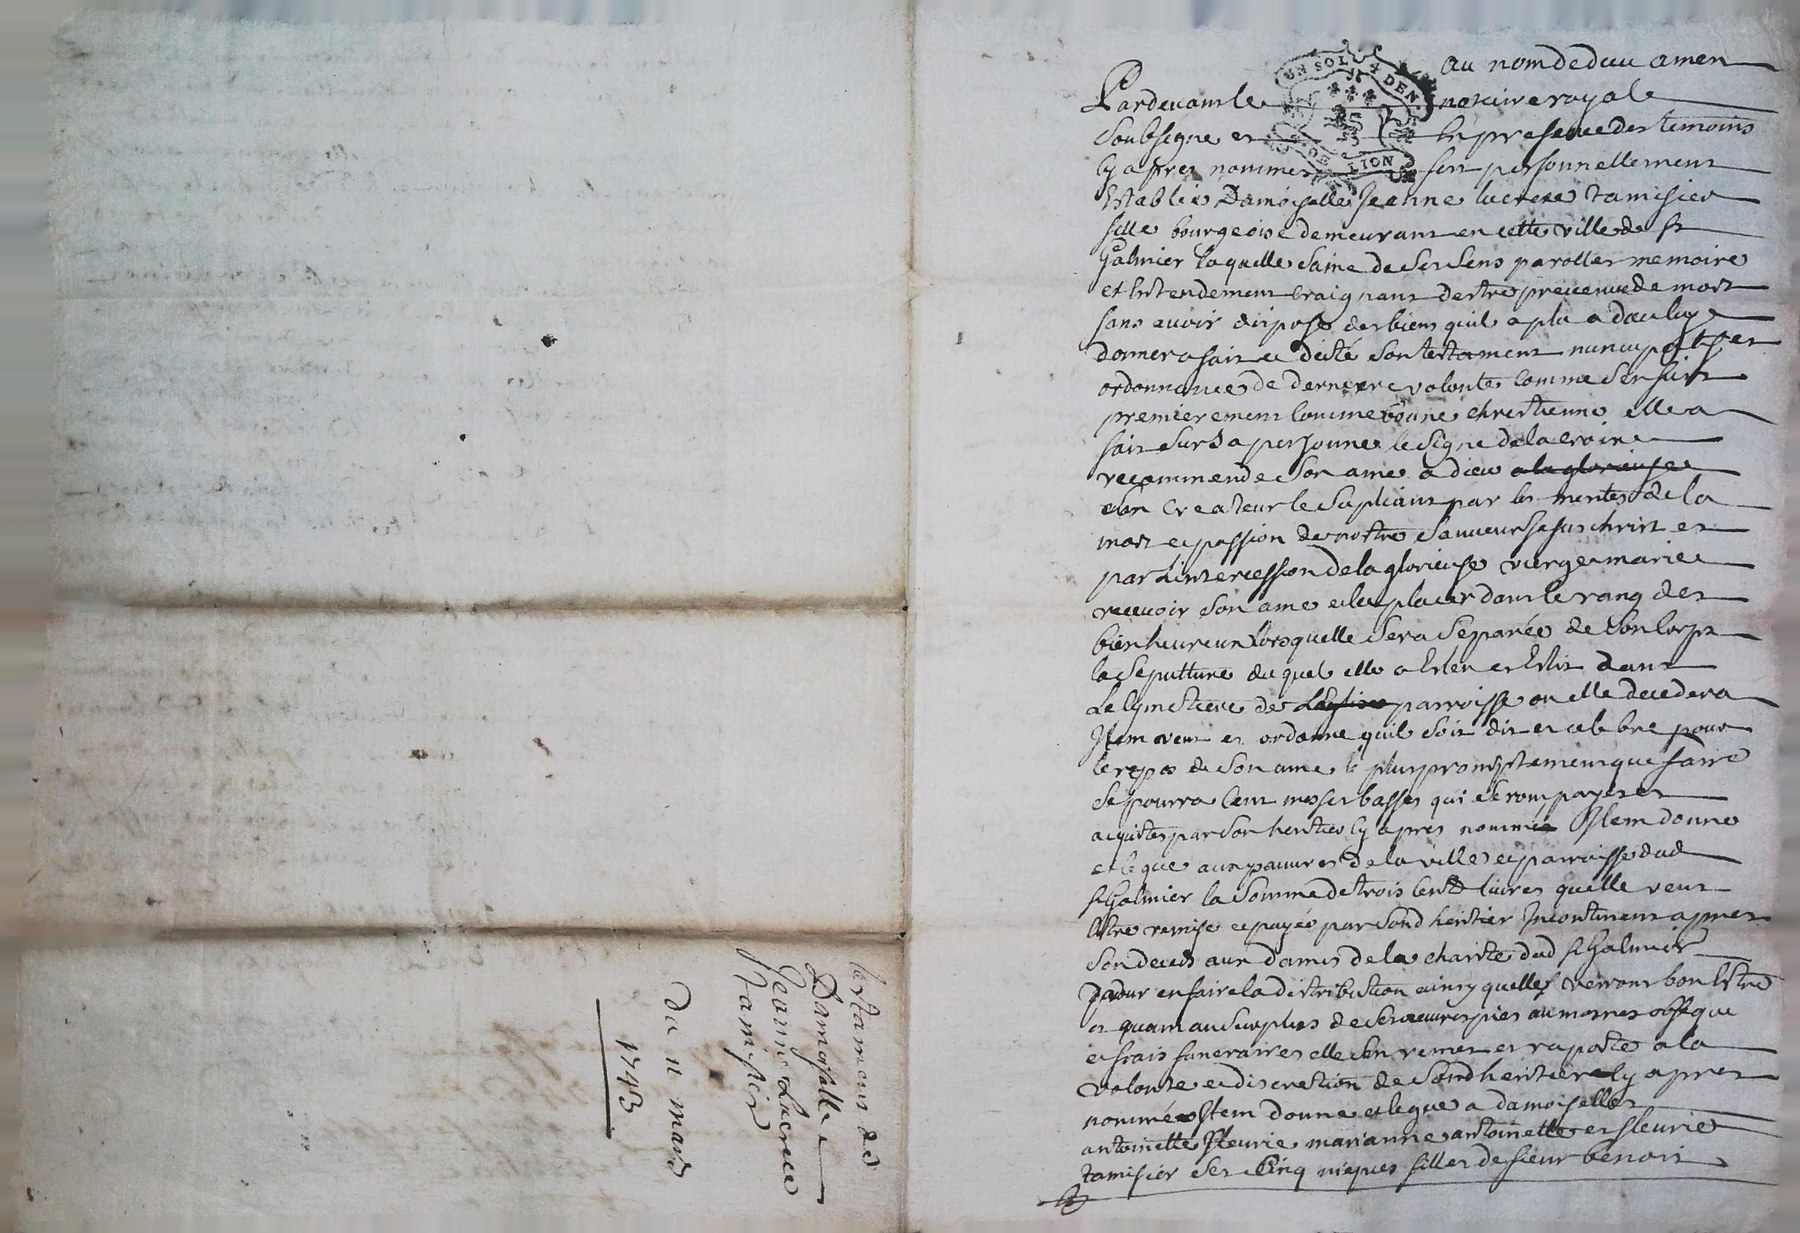 testament de
Damoiselle
Jeanne Lucrece
tamisier
Du 11 mars
1743
UN SOL 4 DEN
DE LION
au nom de dieu amen
Pardevant le notaire royale
soubsigne et en presence des temoins
cy apres nommes fut personnellement
establie Damoiselle Jeanne lucrece tamisier
fille bourgeoise demeurant en cette ville de st
Galmier laquelle saine de ses sens parolles memoire
et entendement craignant destre prevenue de mort
sans avoir dispose des biens quil a plu a dieu luy
donner a fait et dicté son testament nuncupatif et
ordonnance de derniere volonte comme sensuit
premierement comme bonne chrestienne elle a
fait sur sa personne le signe de la croix
recommende son ame a dieu a la glorieuse
son createur le supliant par les merites de la
mort et passion de nostre sauveur Jesus christ et
par lintercession de la glorieuse vierge marie
recevoir son ame et la placer dans le rang des
bienheureux lorsquelle sera separée de son corps
la sepulture duquel elle a esleu et eslit dans
le cymetiere de parroisse ou elle decedera
Item veut et ordonne quil soit dit et celebre pour
le repos de son ame le plus promptement que faire
se pourra cent messes basses qui seront payees et
aquites par son heritier cy apres nommé Item donne
et legue aux pauvres de la ville et parroisse dud
st Galmier la somme de trois cent livres quelle veut
estre remise et payée par sond heritier Incontinent apres
son deces aux dames de la charité dud st Galmier
pour en faire la distribution ainsy quelles verront bon estre
et quant au surplus de ses œuvres pies aumosnes obseque
et frais funeraires elle sen remet et raporte a la
volonte et discretion de sond heritier cy apres
nommé Item donne et legue a damoiselles
antoinette fleurie marianne antoinette et fleurie
tamisier ses cinq nieques filles de sieur benoit